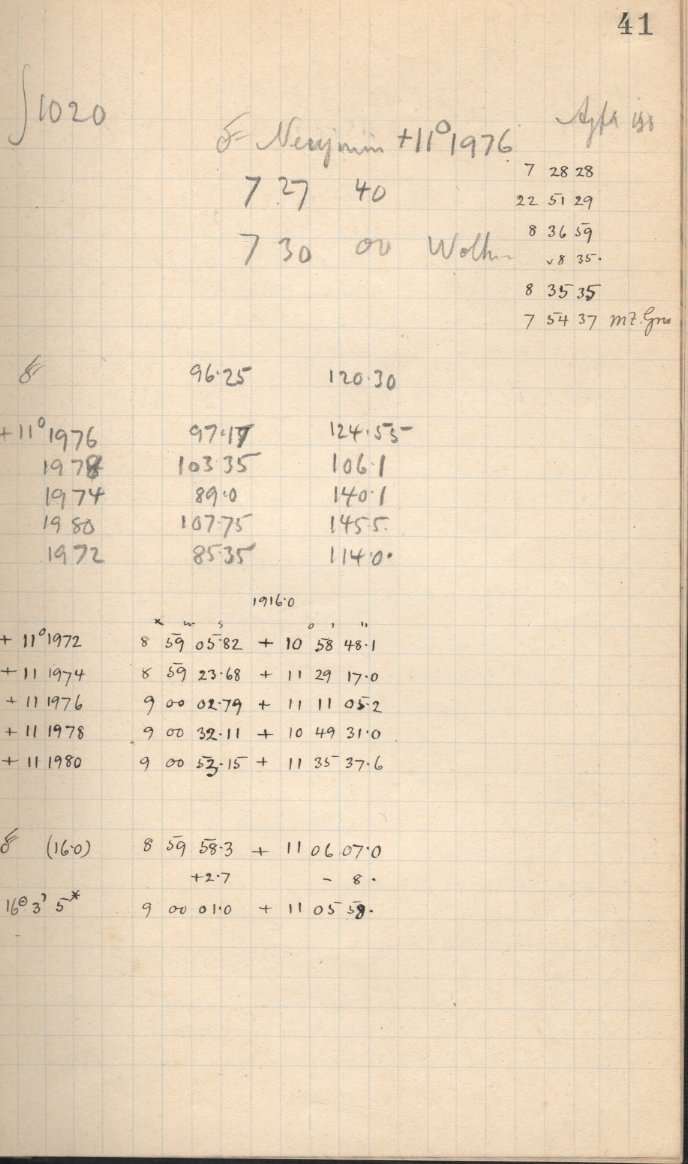 41
∫1020
☄ Neujmin +11° 1976
7 27 40
7 30 00
7 28 28
22 51 29
8 36 59
8 35.
8 35 35
7 54 37 MZ.
☄ 96.25 120.30
+11° 1976 97.17 124.55
1978 103.35 106.1
1974 89.0 140.1
1980 107.75 145.5.
1972 85.35 114.0.
1916.0
h m s ° ' "
+ 11° 1972 8 59 05.82 + 10 58 48.1
+ 11 1974 8 59 23.68 + 11 29 17.0
+ 11 1976 9 00 02.79 + 11 11 05.2
+ 11 1978 9 00 32.11 + 10 49 31.0
+ 11 1980 9 00 53.15 + 11 35 37.6
☄ (16.0) 8 59 58.3 + 11 06 07.0
+2.7 - 8.
9 00 01.0 + 11 05 59.